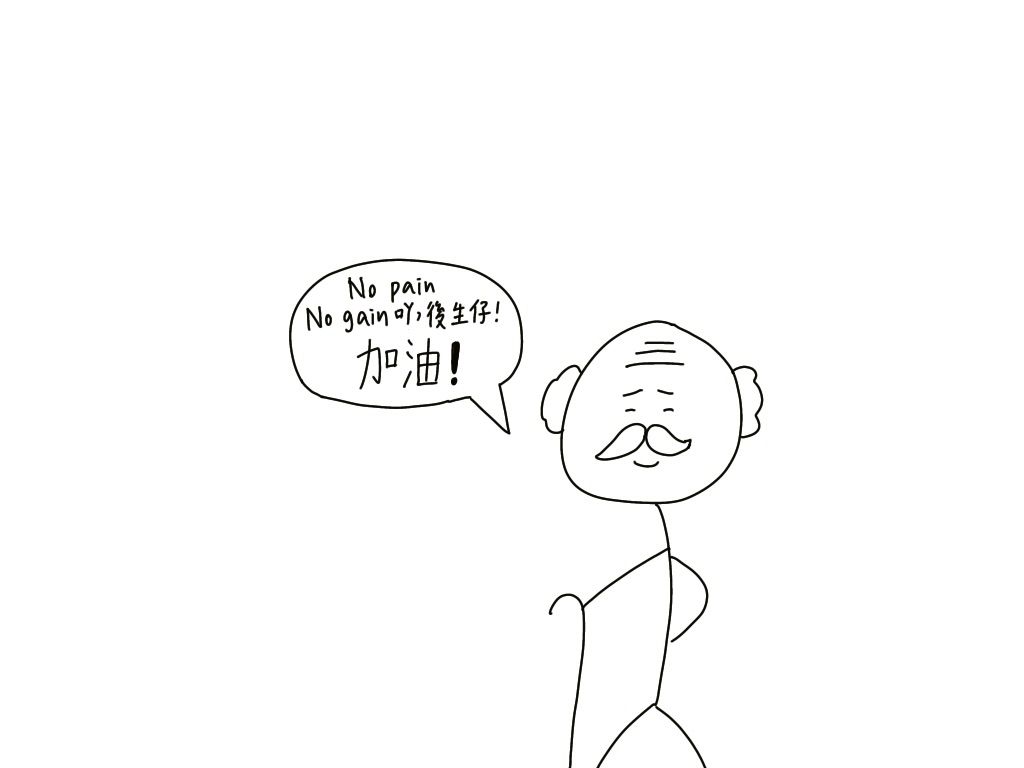 No pain
No gain吖,後生仔!
加油!